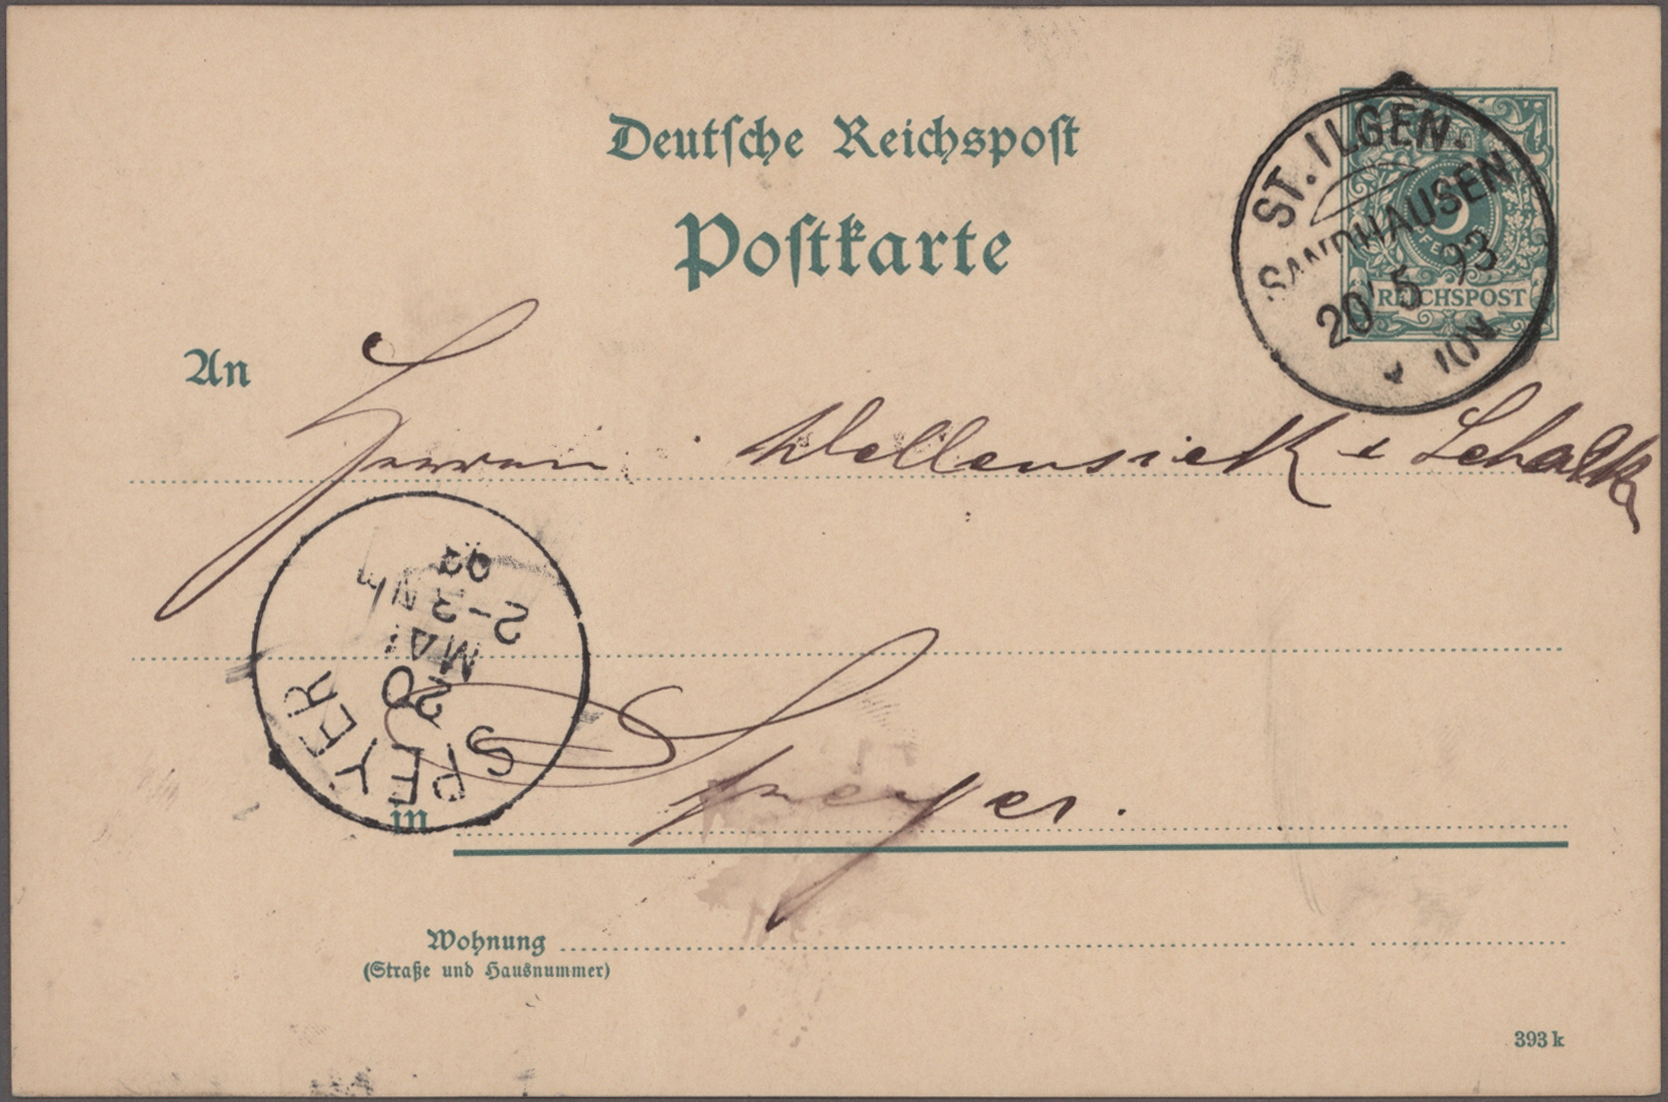 Deutsche Reichspost
Postkarte
ST. ILGEN.
SANDHAUSEN
20 5 93
10 V.
PFENNIG
REICHSPOST
An
Herren Wellensiek & Schalk
SPEYER
20
MAI
2-3 Nm
in
Speyer.
Wohnung
(Straße und Hausnummer)
393 k